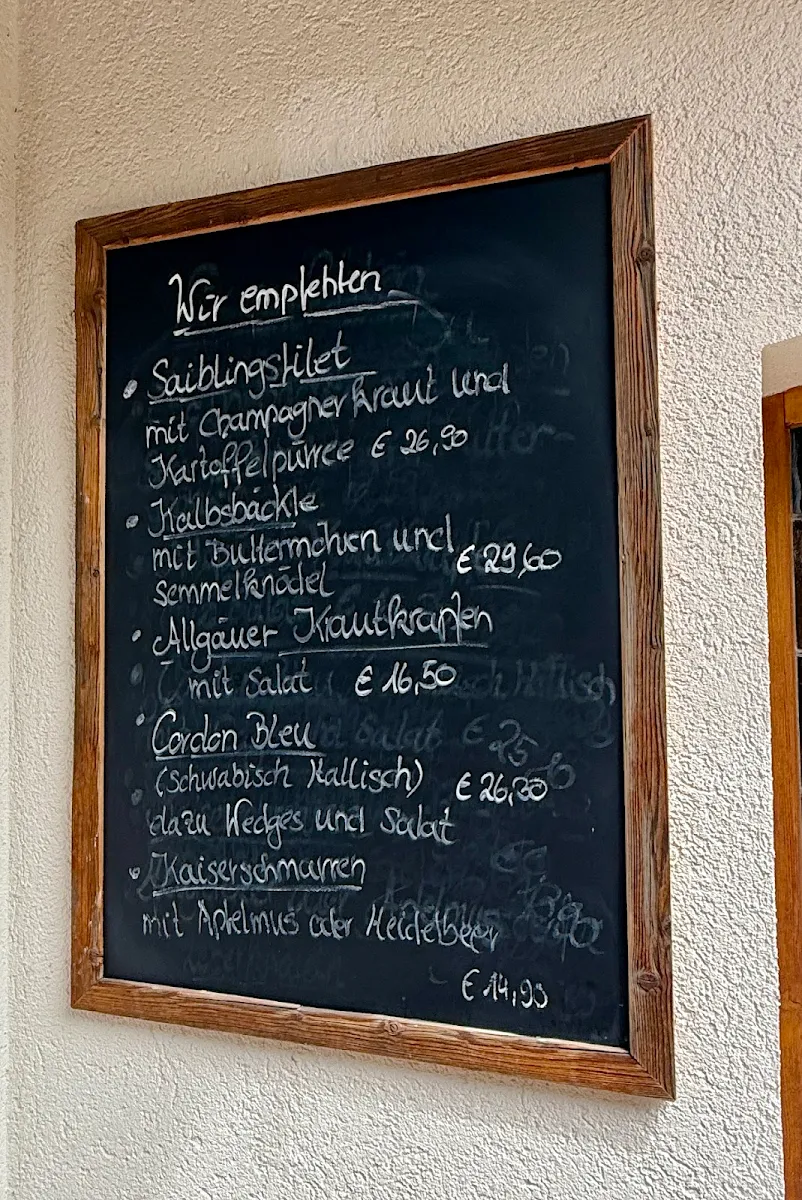 Wir empfehlen
• Saiblingsfilet
mit Champagnerkraut und
Kartoffelpürree € 26,90
• Kalbsbäckle
mit Buttermöhren und € 29,60
Semmelknödel
• Allgäuer Krautkrapfen
mit Salat € 16,50
• Cordon Bleu
(Schwäbisch Hallisch) € 26,30
dazu Wedges und Salat
• Kaiserschmarren
mit Apfelmus oder Heidelbeer
€ 14,90